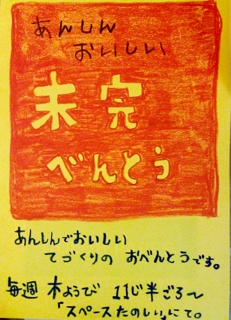 あんしん
おいしい
末完
べんとう
あんしんでおいしい
てづくりの おべんとうです。
毎週 木ようび 11じ半ごろ〜
「スペースたのしい」にて。